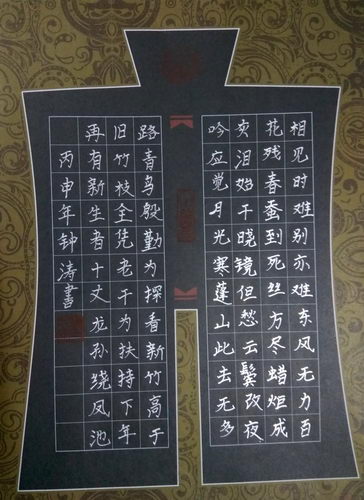 相见时难别亦难东风无力百
花残春蚕到死丝方尽蜡炬成
灰泪始干晓镜但愁云鬓改夜
吟应觉月光寒蓬山此去无多
路青鸟殷勤为探看新竹高于
旧竹枝全凭老干为扶持下年
再有新生者十丈龙孙绕凤池
丙申年钟涛書